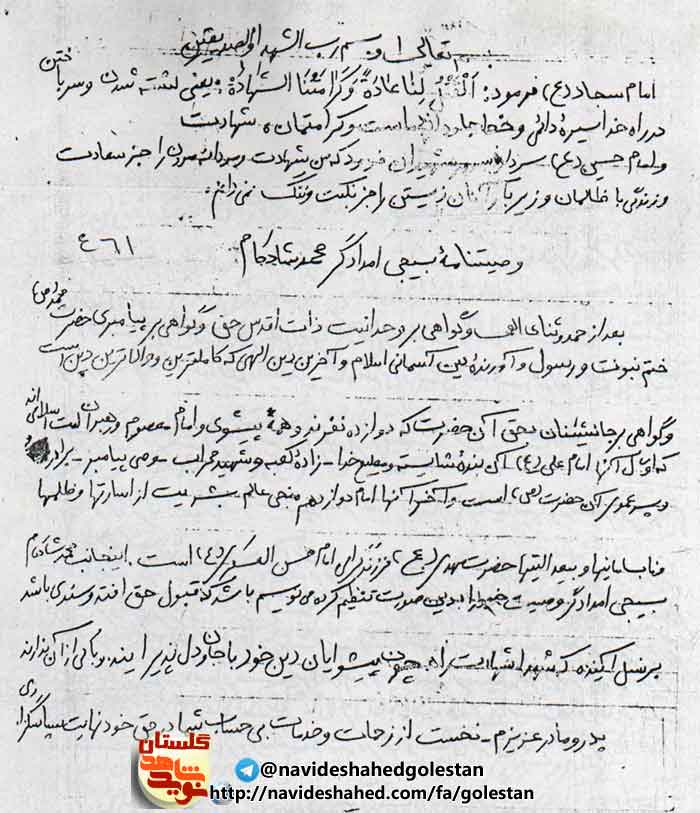 بسمه تعالی و بسم رب الشهداء و الصدیقین
امام سجاد (ع) فرمود: اَلْقَتْلُ لَنا عادَةٌ وَ کَرامَتُنا الشَّهادَةُ: یعنی کشته شدن و سر باختن
در راه خدا سیرهٔ دائمی و خط جاودانهٔ ماست و کرامتمان، شهادت
و امام حسین (ع) سردار و سرور شهیدان فرمود که من شهادت و مردانه مردن را جز سعادت
و زندگی با ظالمان و زیر بار آنان زیستن را جز نکبت و ننگ نمی‌دانم.
وصیتنامهٔ بسیجی امدادگر محمد شادکام
۴۶۱
بعد از حمد و ثنای الهی و گواهی بر وحدانیت ذات اقدس حق و گواهی بر پیامبری حضرت محمد (ص)
ختم نبوت و رسول و آورنده دین آسمانی اسلام و آخرین دین الهی که کاملترین و والاترین دین است
و گواهی بر جانشینان بحق آن حضرت که دوازده نفرند و همهٔ پیشوای و امام معصوم و رهبران امت اسلامی‌اند
که اول آنها امام علی (ع) آن بندهٔ شایسته و مطیع خدا - زادهٔ کعبه و شهید محراب - وصی پیامبر - برادر
و پسر عموی آن حضرت (ص) است و آخر آنها امام دوازدهم منجی عالم بشریت از اسارتها و ظلمها
و نابسامانیها و بیعدالتیها حضرت مهدی (عج) فرزند گرامی امام حسن العسکری (ع) است. اینجانب محمد شادکام
بسیجی امدادگر وصیت خود را بدین صورت تنظیم کرده می‌نویسم باشد که قبول حق افتد و سندی باشد
بر نسل آینده که شهدا شهادت راه پیشوایان دین خود با جان و دل پذیرایند و باکی از آن ندارند
پدر و مادر عزیزم - نخست از زحمات و خدمات بی حساب شما در حق خود نهایت سپاسگزاری
گلستان
نوید شاهد
@navideshahedgolestan
http://navideshahed.com/fa/golestan